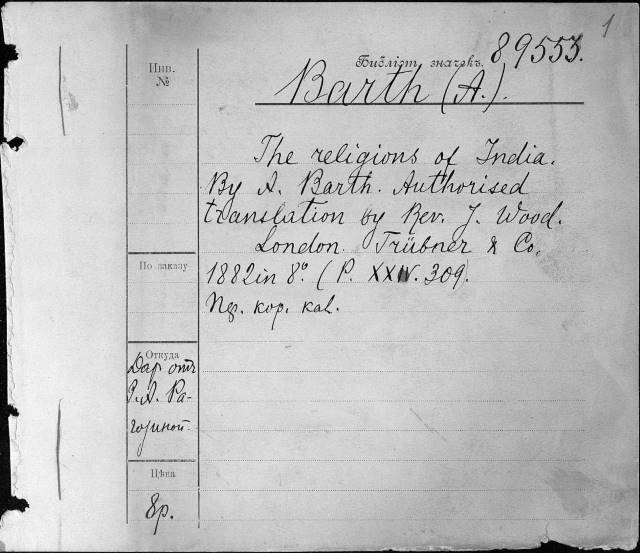 1
Инв.
№
Библіот. значекъ. 89553.
Barth (A.).
The religions of India.
By A. Barth. Authorised
translation by Rev. J. Wood.
London. Trübner & Co.
1882 in 8°. (P. XXIV. 309).
кор. kal.
По заказу
Откуда
Даръ отъ
З. А. Ра-
гозиной.
Цѣна
8р.